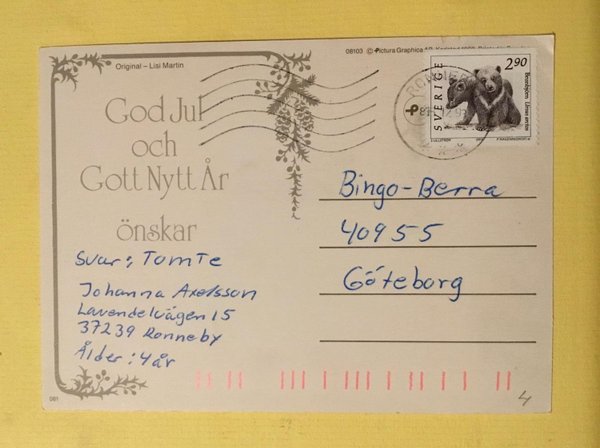 Original – Lisi Martin
08103 © Pictura Graphica AB, Karlstad
God Jul
och
Gott Nytt År
önskar
Svar: Tomte
Johanna Axelsson
Lavendelvägen 15
37239 Ronneby
Ålder: 4 år
081
SVERIGE
2.90
Brunbjörn Ursus arctos
RONNEBY
Bingo-Berra
40955
Göteborg
4